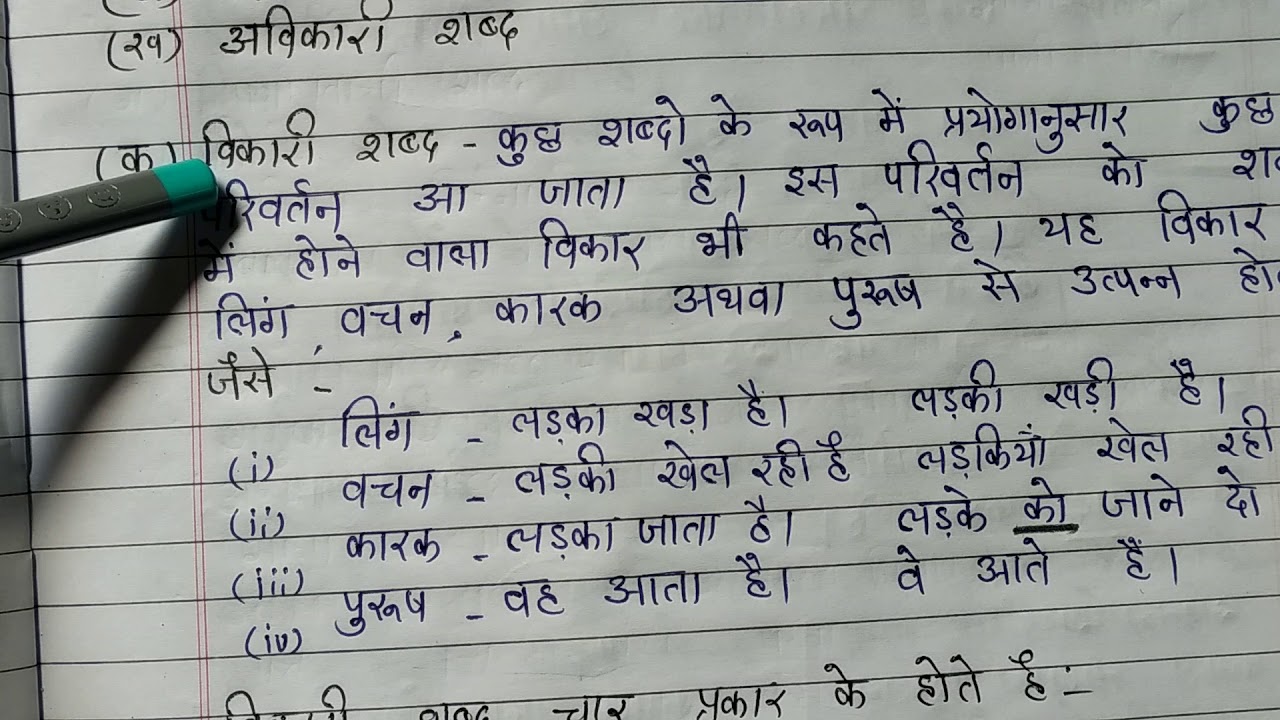 (ख) अविकारी शब्द
(क) विकारी शब्द - कुछ शब्दो के रूप में प्रयोगानुसार कुछ
परिवर्तन आ जाता है। इस परिवर्तन को
में होने वाला विकार भी कहते है। यह विकार
लिंग, वचन, कारक अथवा पुरूष से उत्पन्न
जैसे -
(i) लिंग - लड़का खड़ा है। लड़की खड़ी है।
(ii) वचन - लड़की खेल रही है लड़कियाँ खेल रही
(iii) कारक - लड़का जाता है। लड़के को जाने दो
(iv) पुरूष - वह आता है। वे आते हैं।
शब्द चार प्रकार के होते है:-